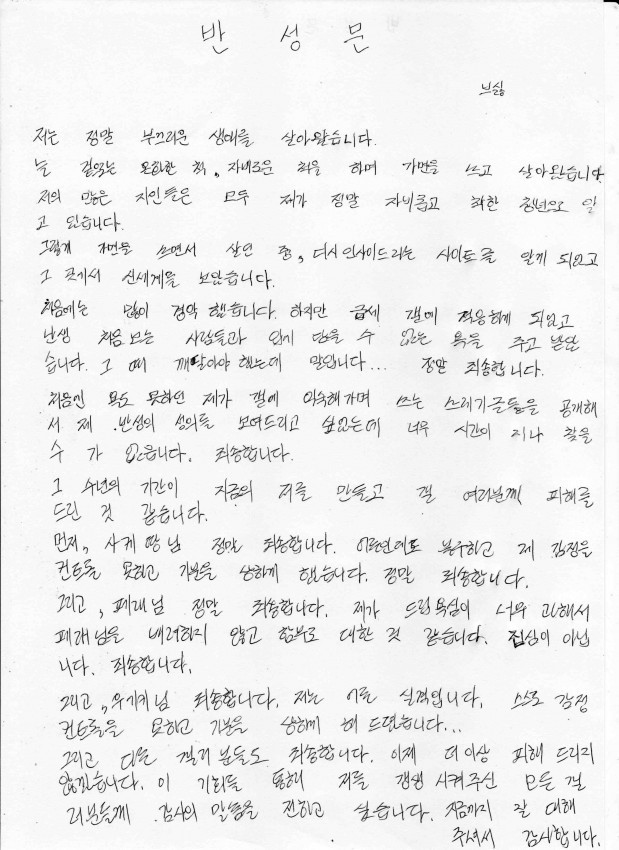 반 성 문
브싫
저는 정말 부끄러운 생애를 살아왔습니다.
늘 겉있는 온화한 척, 자비로운 척을 하며 가면을 쓰고 살아왔습니다.
저의 많은 지인들은 모두 제가 정말 자비롭고 착한 청년으로 알
고 있습니다.
그렇게 가면을 쓰면서 살던 중, 디시인사이드라는 사이트를 알게 되었고
그 곳에서 신세계를 보았습니다.
처음에는 많이 경악 했습니다. 하지만 금세 갤에 적응하게 되었고
난생 처음 보는 사람들과 입에 담을 수 없는 욕을 주고 받았
습니다. 그 때 깨달아야 했는데 말입니다... 정말 죄송합니다.
처음엔 욕도 못하던 제가 갤에 익숙해가며 쓰는 쓰레기글들을 공개해
서 제 반성의 성의를 보여드리고 싶었는데 너무 시간이 지나 찾을
수 가 없습니다. 죄송합니다.
그 수년의 기간이 지금의 저를 만들고 갤 여러분께 피해를
드린 것 같습니다.
먼저, 사케땅님 정말 죄송합니다. 어른인데도 불구하고 제 감정을
컨트롤 못하고 기분을 상하게 했습니다. 정말 죄송합니다.
그리고, 페래님 정말 죄송합니다. 제가 드립욕심이 너무 과해서
페래님을 배려하지 않고 함부로 대한 것 같습니다. 진심이 아닙
니다. 죄송합니다.
그리고, 우기게님 죄송합니다. 저는 어른 실격입니다. 스스로 감정
컨트롤을 못하고 기분을 상하게 해 드렸습니다...
그리고 다른 갤러 분들도 죄송합니다. 이제 더이상 피해 드리지
않겠습니다. 이 기회를 통해 저를 갱생 시켜주신 모든 갤
러분들께 감사의 말씀을 전하고 싶습니다. 지금까지 잘 대해
주셔서 감사합니다.